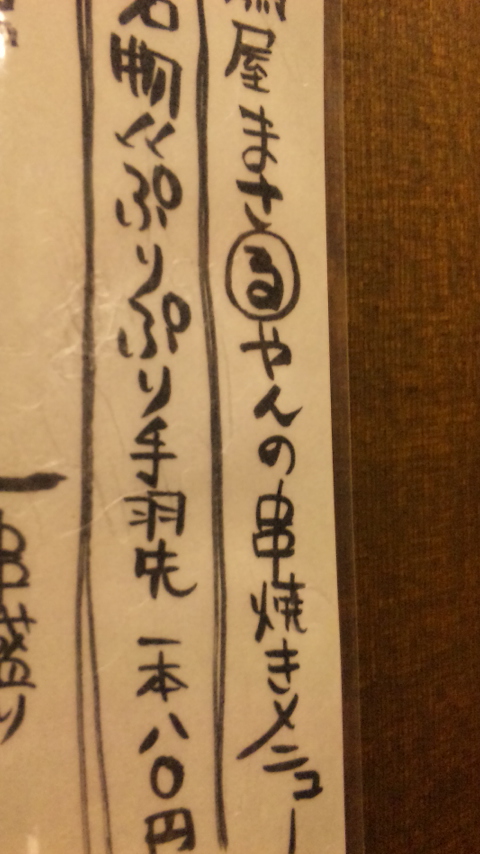 屋まさるやんの串焼きメニュー
名物!!ぷりぷり手羽先 一本八〇円
串盛り